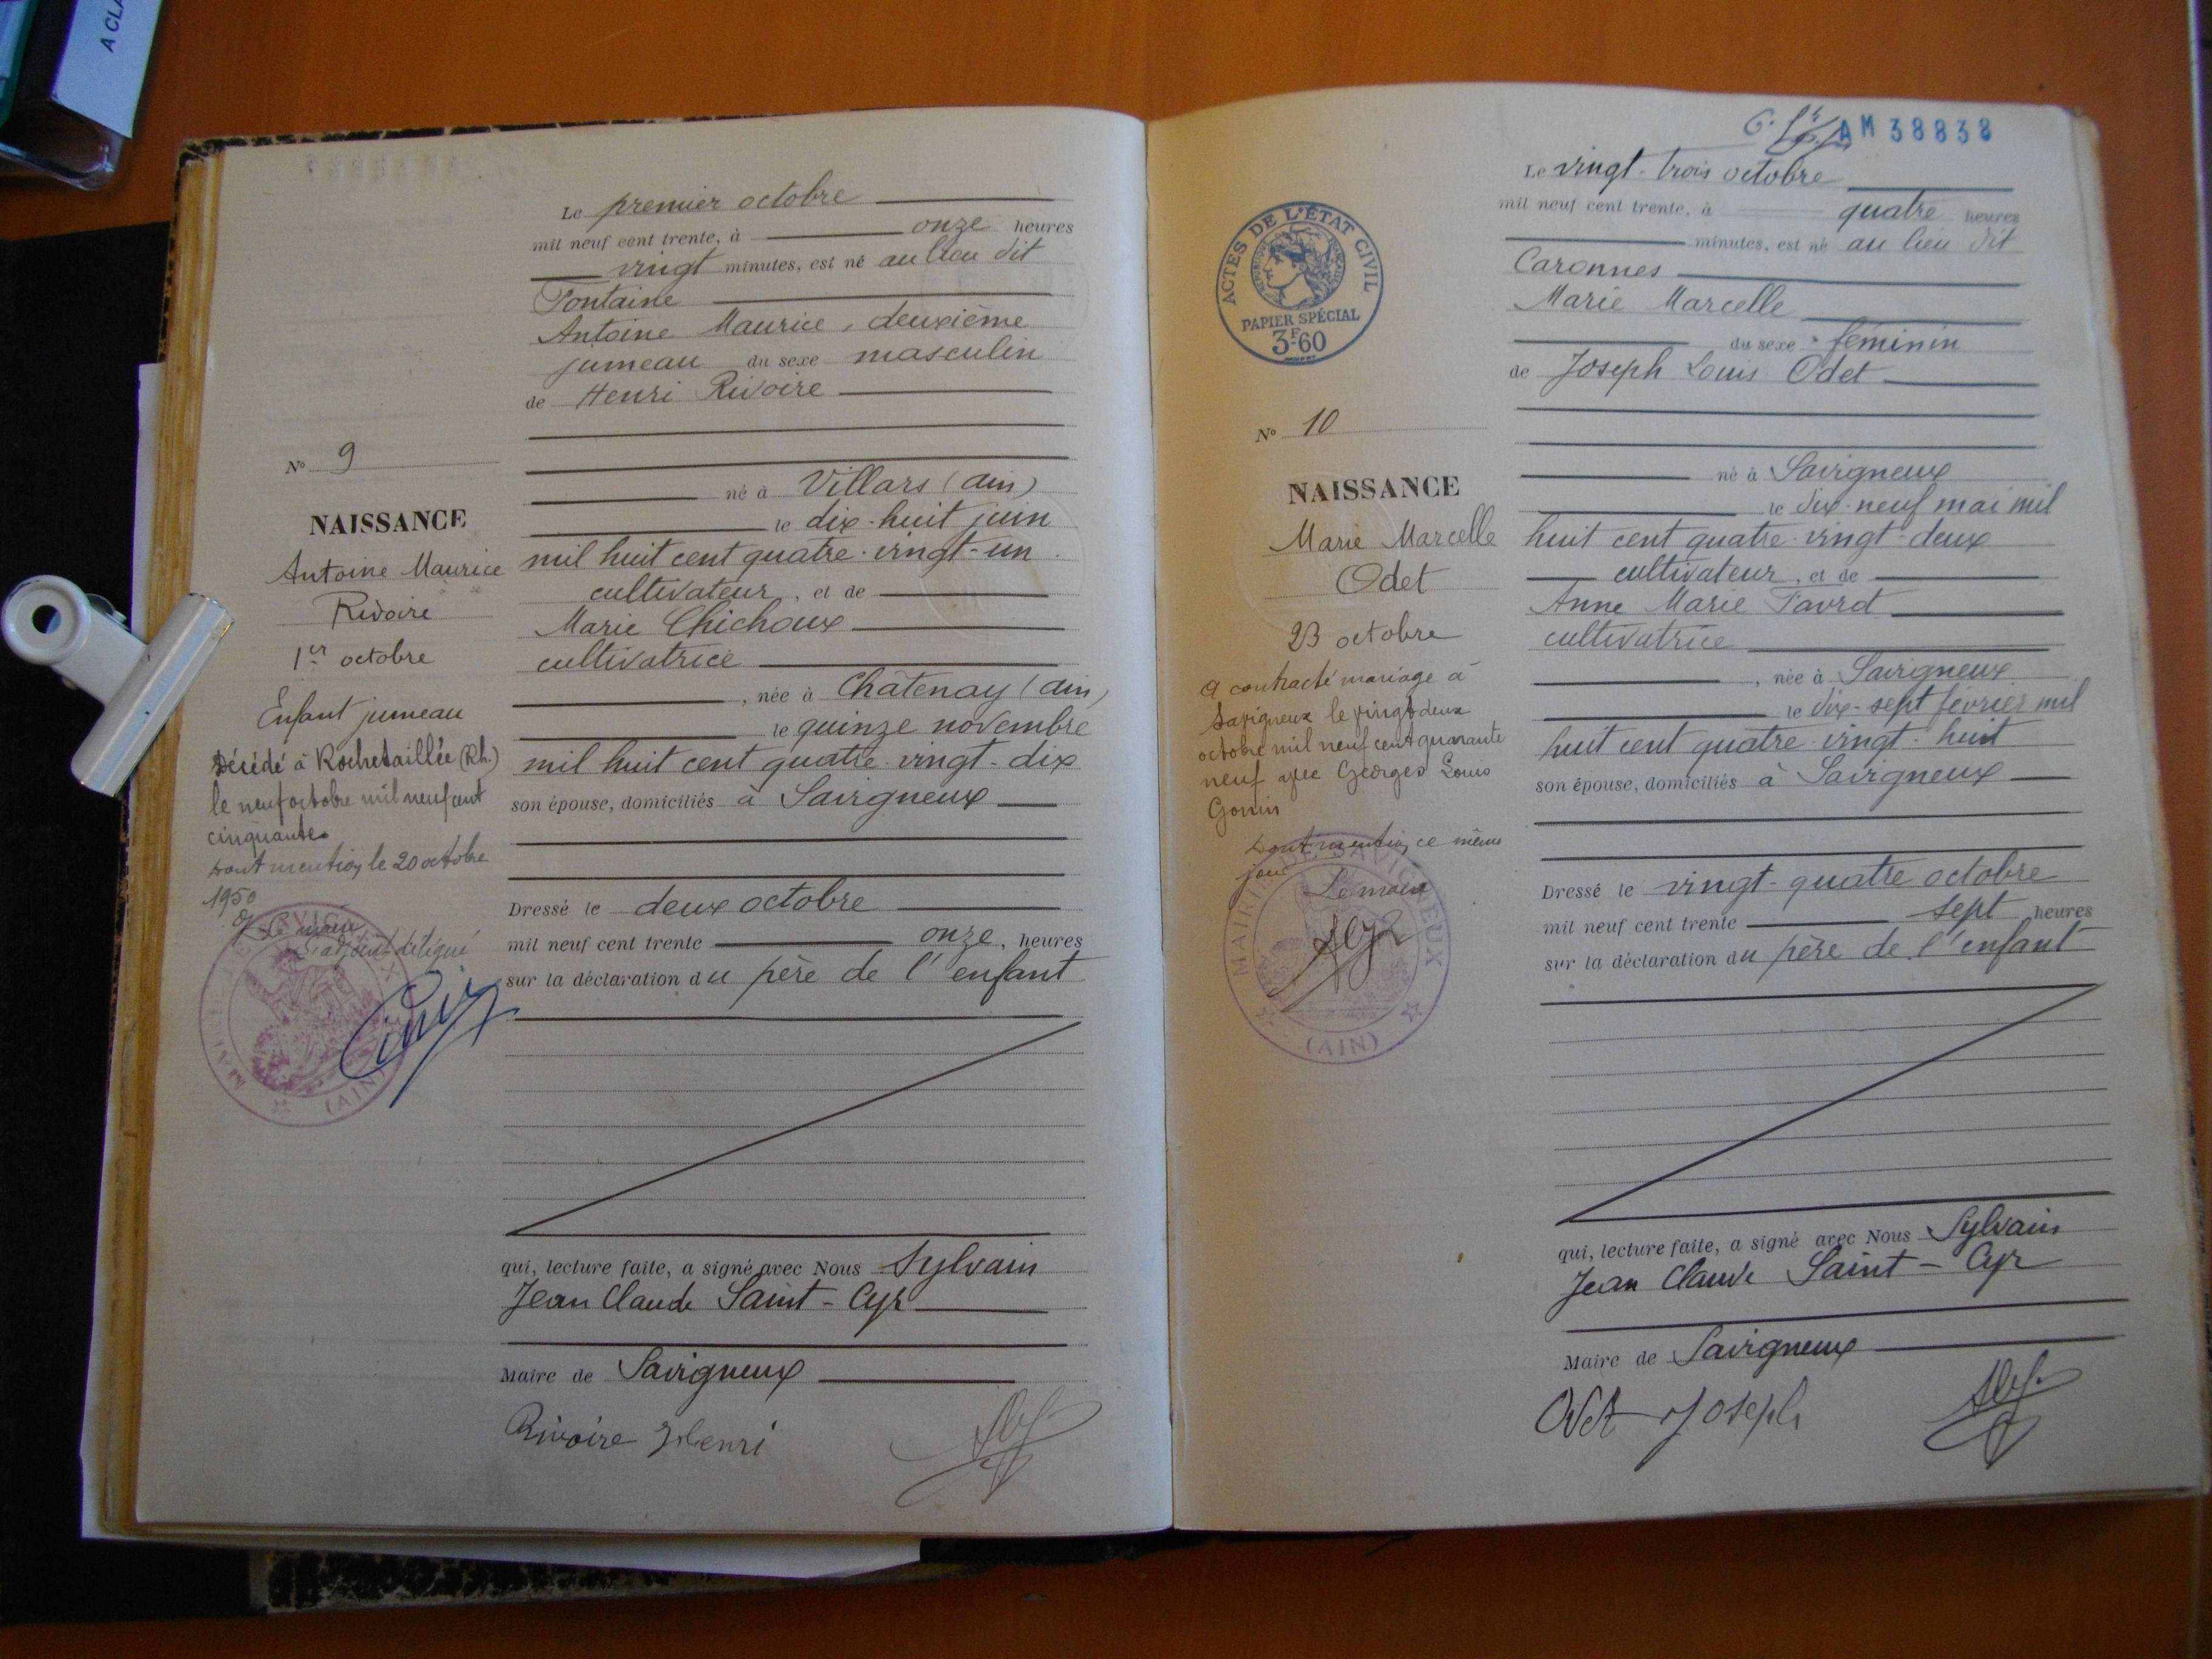 A CLA
Le premier octobre
mil neuf cent trente, à onze heures
vingt minutes, est né au lieu dit
Fontaine
Antoine Maurice, deuxième
jumeau du sexe masculin
de Henri Rivoire
né à Villars (Ain)
le dix-huit juin
mil huit cent quatre-vingt-un
cultivateur, et de
Marie Chichoux
cultivatrice
, née à Châtenay (Ain)
le quinze novembre
mil huit cent quatre-vingt-dix
son épouse, domiciliés à Savigneux
Dressé le deux octobre
mil neuf cent trente onze, heures
sur la déclaration du père de l'enfant
qui, lecture faite, a signé avec Nous Sylvain
Jean Claude Saint-Cyr
Maire de Savigneux
Rivoire Henri
No 9
NAISSANCE
Antoine Maurice
Rivoire
1er octobre
Enfant jumeau
Décédé à Rochetaillée (Rh.)
le neuf octobre mil neuf cent
cinquante.
Dont mention le 20 octobre
1950
Le maire
L'adjoint délégué
(AIN)
AM 38838
Le vingt-trois octobre
mil neuf cent trente, à quatre heures
minutes, est né au lieu dit
Caronnes
Marie Marcelle
du sexe féminin
de Joseph Louis Odet
né à Savigneux
le dix-neuf mai mil
huit cent quatre-vingt-deux
cultivateur, et de
Anne Marie
cultivatrice
, née à Savigneux
le dix-sept février mil
huit cent quatre-vingt-huit
son épouse, domiciliés à Savigneux
Dressé le vingt-quatre octobre
mil neuf cent trente sept heures
sur la déclaration du père de l'enfant
qui, lecture faite, a signé avec Nous Sylvain
Jean Claude Saint-Cyr
Maire de Savigneux
Odet Joseph
ACTES DE L'ÉTAT CIVIL
RÉPUBLIQUE FRANÇAISE
PAPIER SPÉCIAL
3F60
No 10
NAISSANCE
Marie Marcelle
Odet
23 octobre
A contracté mariage à
Savigneux le vingt deux
octobre mil neuf cent quarante
neuf avec Georges Louis
Gonin
Dont mention, ce même
jour
Le maire
MAIRIE DE SAVIGNEUX
(AIN)